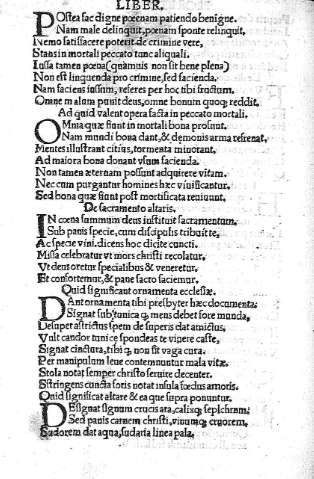 LIBER.
POstea fac digne pœnam patiendo benigne.
Nam male delinquit, pœnam sponte relinquit,
Nemo satisfacere poterit de crimine vere,
Stans in mortali peccato tunc aliquali.
Iussa tamen pœna (quamuis non sit bene plena)
Non est linquenda pro crimine, sed facienda.
Nam faciens iussum, referes per hoc tibi fructum.
Omne malum punit deus, omne bonum quoq; reddit.
Ad quid valent opera facta in peccato mortali.
OMnia quæ fiunt in mortali bona prosunt.
Nam mundi bona dant, & demonis arma refrenat,
Mentes illustrant citius, tormenta minorant.
Ad maiora bona donant vsum facienda.
Non tamen æternam possunt adquirere vitam.
Nec cum purgantur homines hæc viuificantur.
Sed bona quæ fiunt post mortificata reuiuunt.
De sacramento altaris.
IN cœna summum deus instituit sacramentum.
Sub panis specie, cum discipulis tribuit te,
Ac specie vini, dicens hoc dicite cuncti.
Missa celebratur vt mors christi recolatur,
Vt deus oretur specialibus & veneretur.
Et confortemur, & pane sacro saciemur.
Quid significant ornamenta ecclesiæ.
DAnt ornamenta tibi presbyter hæc documenta:
Signat sub tunica q, mens debet fore munda,
Desuper astrictus spem de superis dat amictus,
Vult candor tunicę spondeas te vipere casse,
Signat cinctura, tibi q, non sit vaga cura.
Per manipulum leue contemnuntur mala vitæ.
Stola notat semper christo seruire decenter.
Stringens cuncta foris notat insula fœdus amoris.
Quid significat altare & ea que supra ponuntur.
DEsignat signum crucis ara, calixq; seplchrum:
Sed panis carnem christi, vinumq; cruorem,
Sudorem dat aqua, sudaria linea pala,